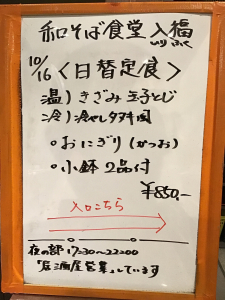 和そば食堂 入福
いりふく
10/16 <日替定食>
温)きざみ玉子とじ
冷)冷やしタヌキ風
○おにぎり(かつお)
○小鉢 2品付
¥850,-
入口こちら
夜の部 17:30~22:00
"居酒屋営業"しています